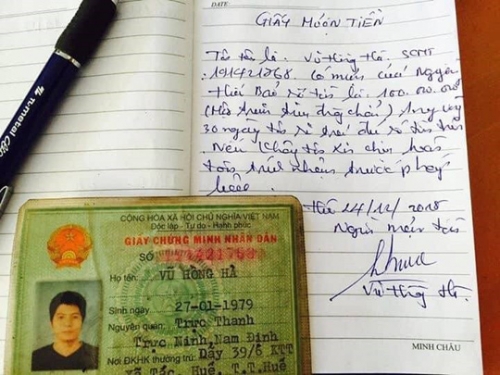 DATE:
GIẤY MƯỢN TIỀN
Tôi tên là. Vũ Hồng Hà. SCMT
191421768. Có mượn của Nguyễn
Thái Bảo số tiền là 100.000.000
(Một trăm triệu đồng chẵn) trong vòng
30 ngay tôi sẽ trả đủ số tiền trên
Nếu tôi xin chịu hoàn
toàn trách nhiệm trước pháp
luật
Huế 24/12/2018
Người mượn tiền
Vũ Hồng Hà
MINH CHÂU
Tvmetal
CỘNG HÒA XÃ HỘI CHỦ NGHĨA VIỆT NAM
Độc lập - Tự do - Hạnh phúc
GIẤY CHỨNG MINH NHÂN DÂN
SỐ
Họ tên: VŨ HỒNG HÀ
Sinh ngày 27-01-1979
Nguyên quán: Trực Thanh
Trực Ninh, Nam Định
Nơi ĐKHK thường trú: Dãy 39/6 KTT
Xã Tắc, Huế, T.T.Huế